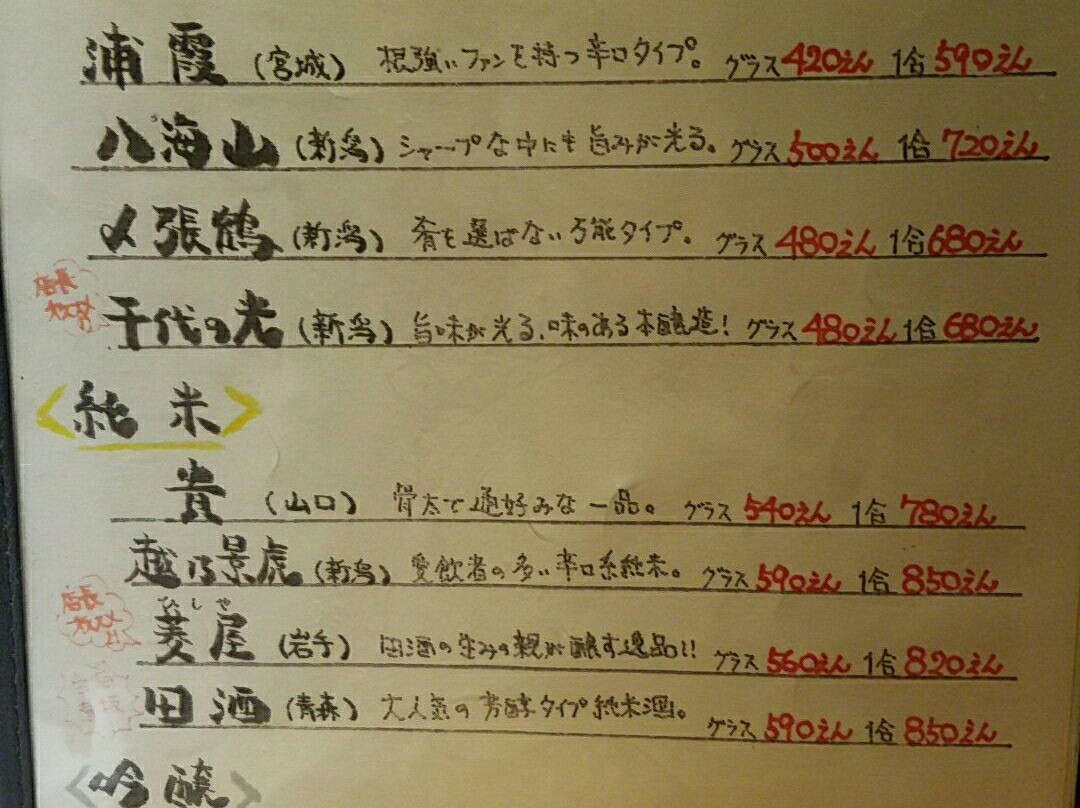 浦霞 (宮城) 根強いファンを持つ辛口タイプ。 グラス 420えん 1合 590えん
八海山 (新潟) シャープな中にも旨みが光る。 グラス 500えん 1合 720えん
〆張鶴 (新潟) 肴を選ばない万能タイプ。 グラス 480えん 1合 680えん
店長オススメ!!
千代の光 (新潟) 旨味が光る、味のある本醸造! グラス 480えん 1合 680えん
<純米>
貴 (山口) 骨太で通好みな一品。 グラス 540えん 1合 780えん
越乃景虎 (新潟) 愛飲者の多い辛口系純米。 グラス 590えん 1合 850えん
店長オススメ!!
ひしや
菱屋 (岩手) 田酒の生みの親が醸す逸品!! グラス 560えん 1合 820えん
田酒 (青森) 大人気の芳醇タイプ純米酒。 グラス 590えん 1合 850えん
<吟醸>